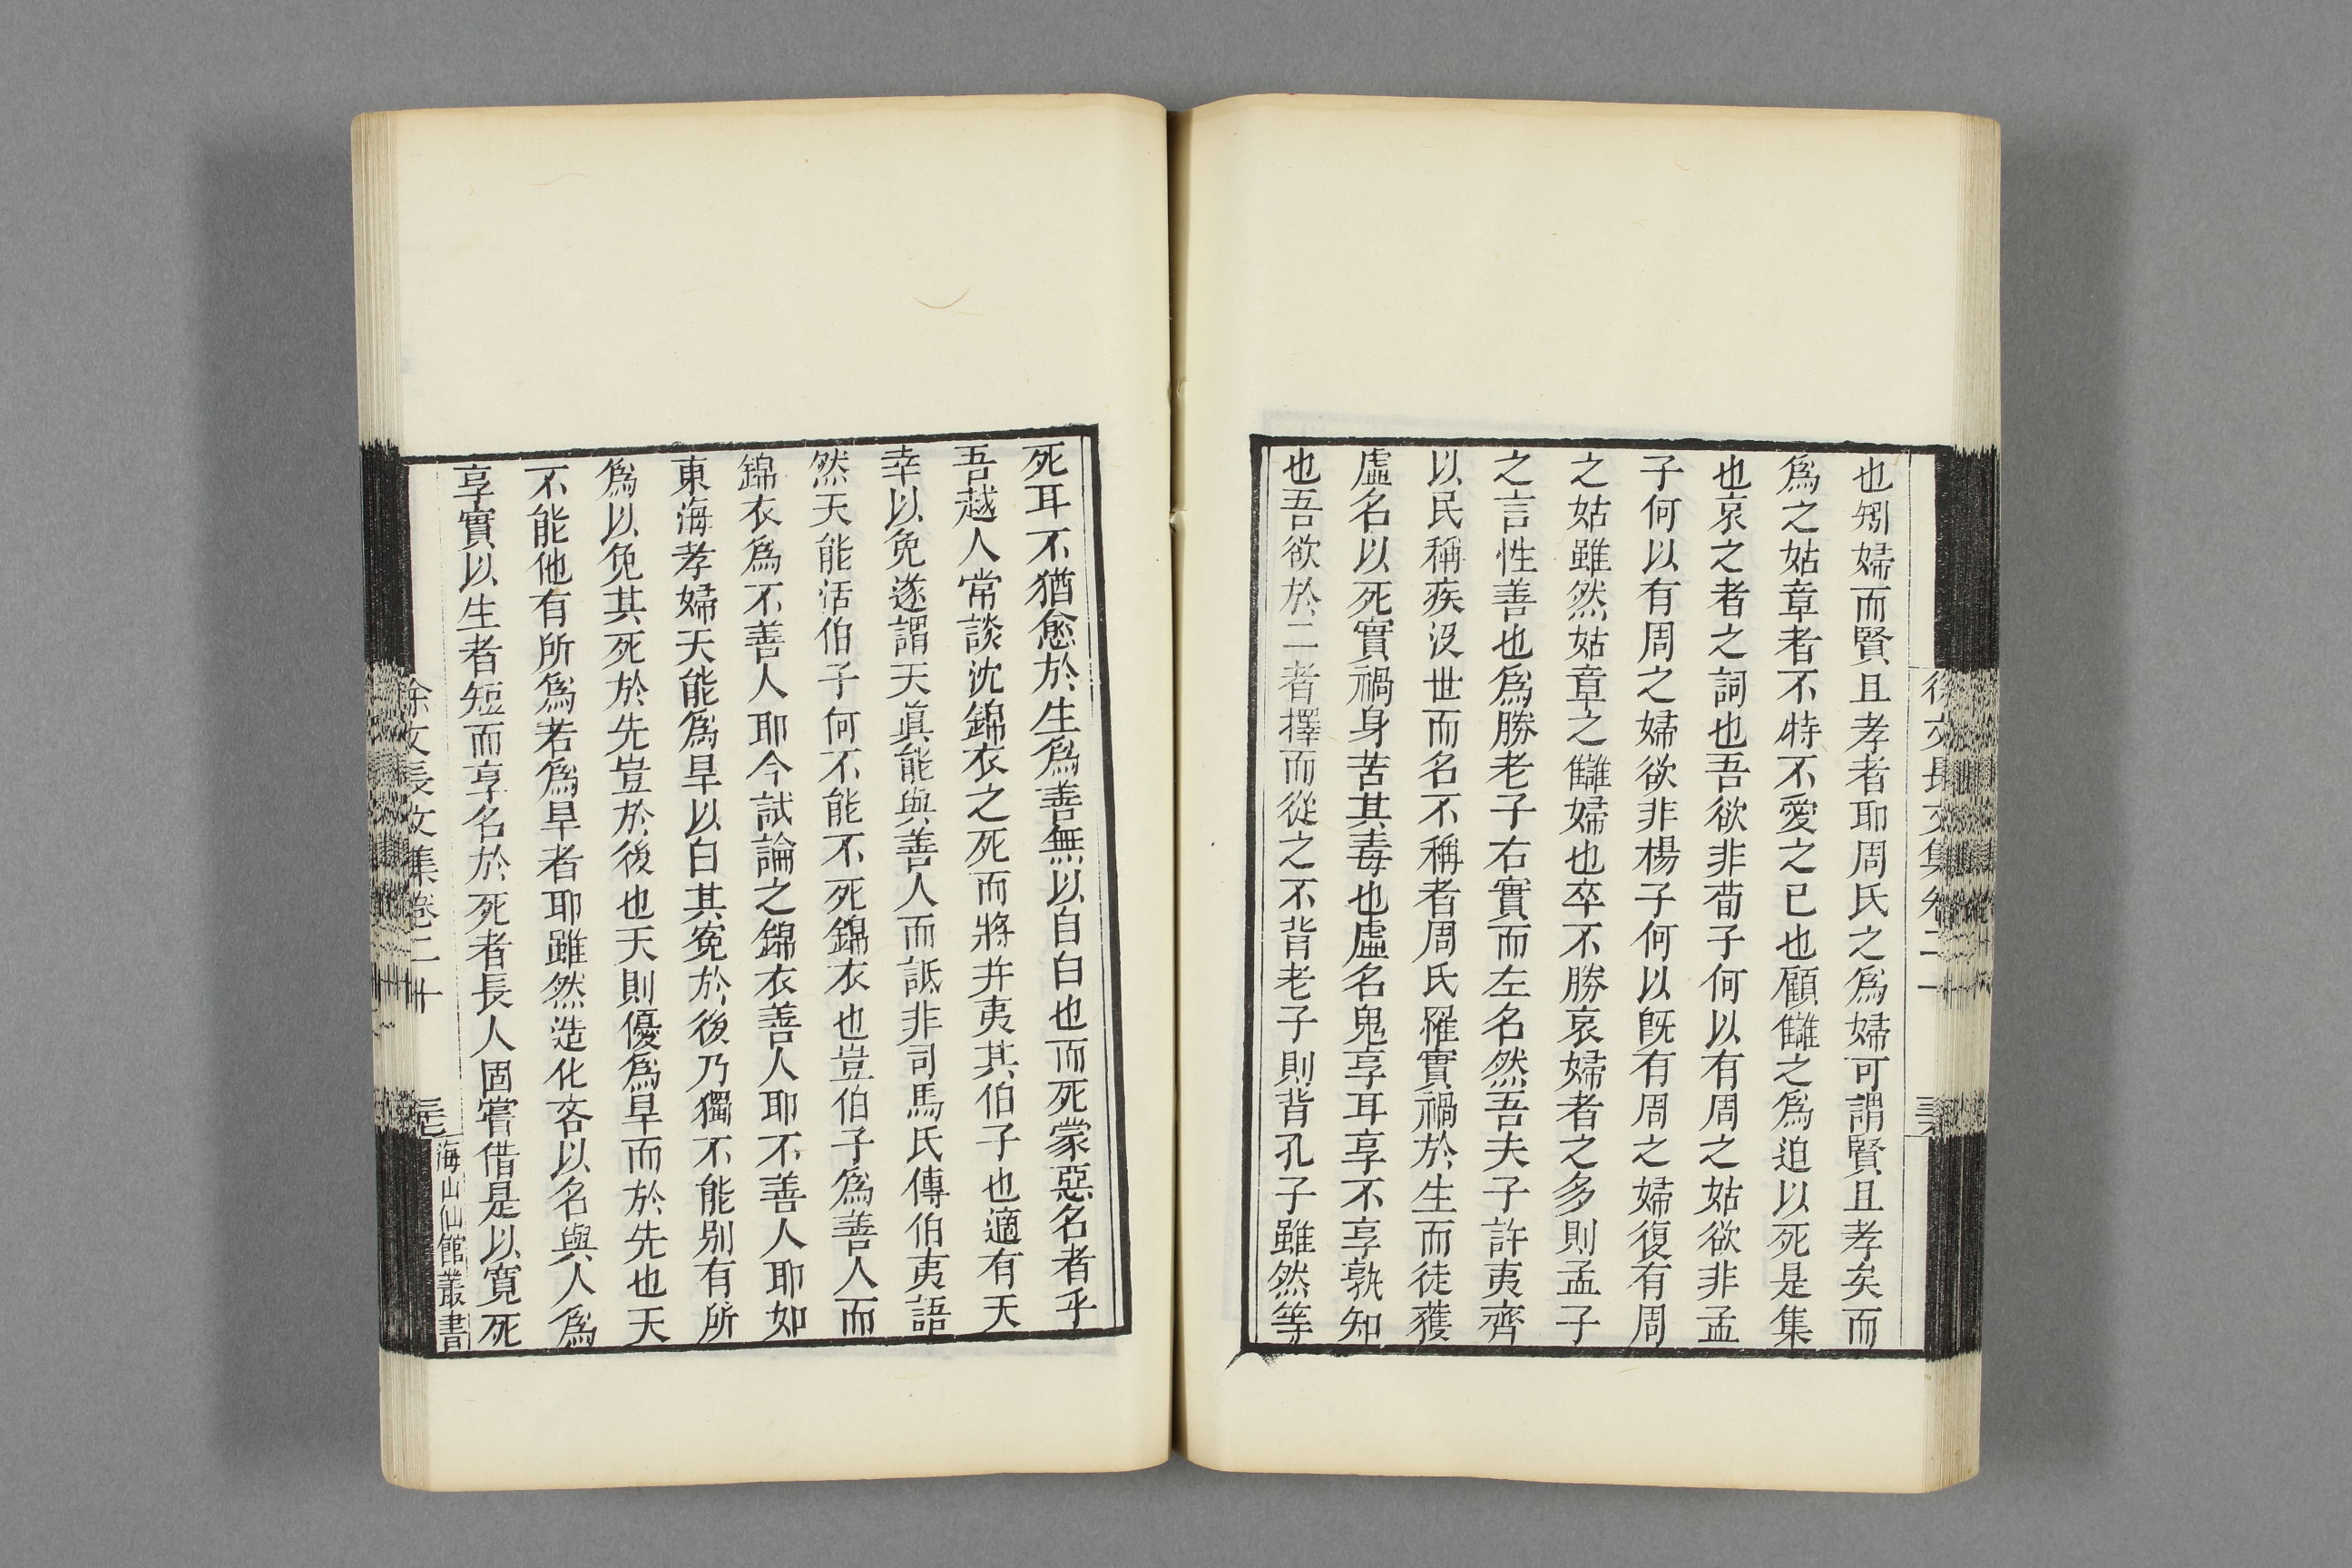 也矧婦而賢且孝者耶周氏之爲婦可謂賢且孝矣而
爲之姑章者不特不愛之已也顧讎之爲迫以死是集
也哀之者之詞也吾欲非荀子何以有周之姑欲非孟
子何以有周之婦欲非楊子何以既有周之婦復有周
之姑雖然姑章之讎婦也卒不勝哀婦者之多則孟子
之言性善也爲勝老子右實而左名然吾夫子許夷齊
以民稱疾沒世而名不稱者周氏罹實禍於生而徒獲
虛名以死實禍身苦其毒也虛名鬼享耳享不享孰知
也吾欲於二者擇而從之不背老子則背孔子雖然等
死耳不猶愈於生爲善無以自白也而死蒙惡名者乎
吾越人常談沈錦衣之死而將并夷其伯子也適有天
幸以免遂謂天眞能與善人而詆非司馬氏傳伯夷語
然天能活伯子何不能不死錦衣也豈伯子爲善人而
錦衣爲不善人耶今試論之錦衣善人耶不善人耶如
東海孝婦天能爲旱以白其寃於後乃獨不能别有所
爲以免其死於先豈於後也天則優爲旱而於先也天
不能他有所爲若爲旱者耶雖然造化吝以名與人爲
享實以生者短而享名於死者長人固嘗借是以寬死
徐文長文集卷二十
海山仙館叢書